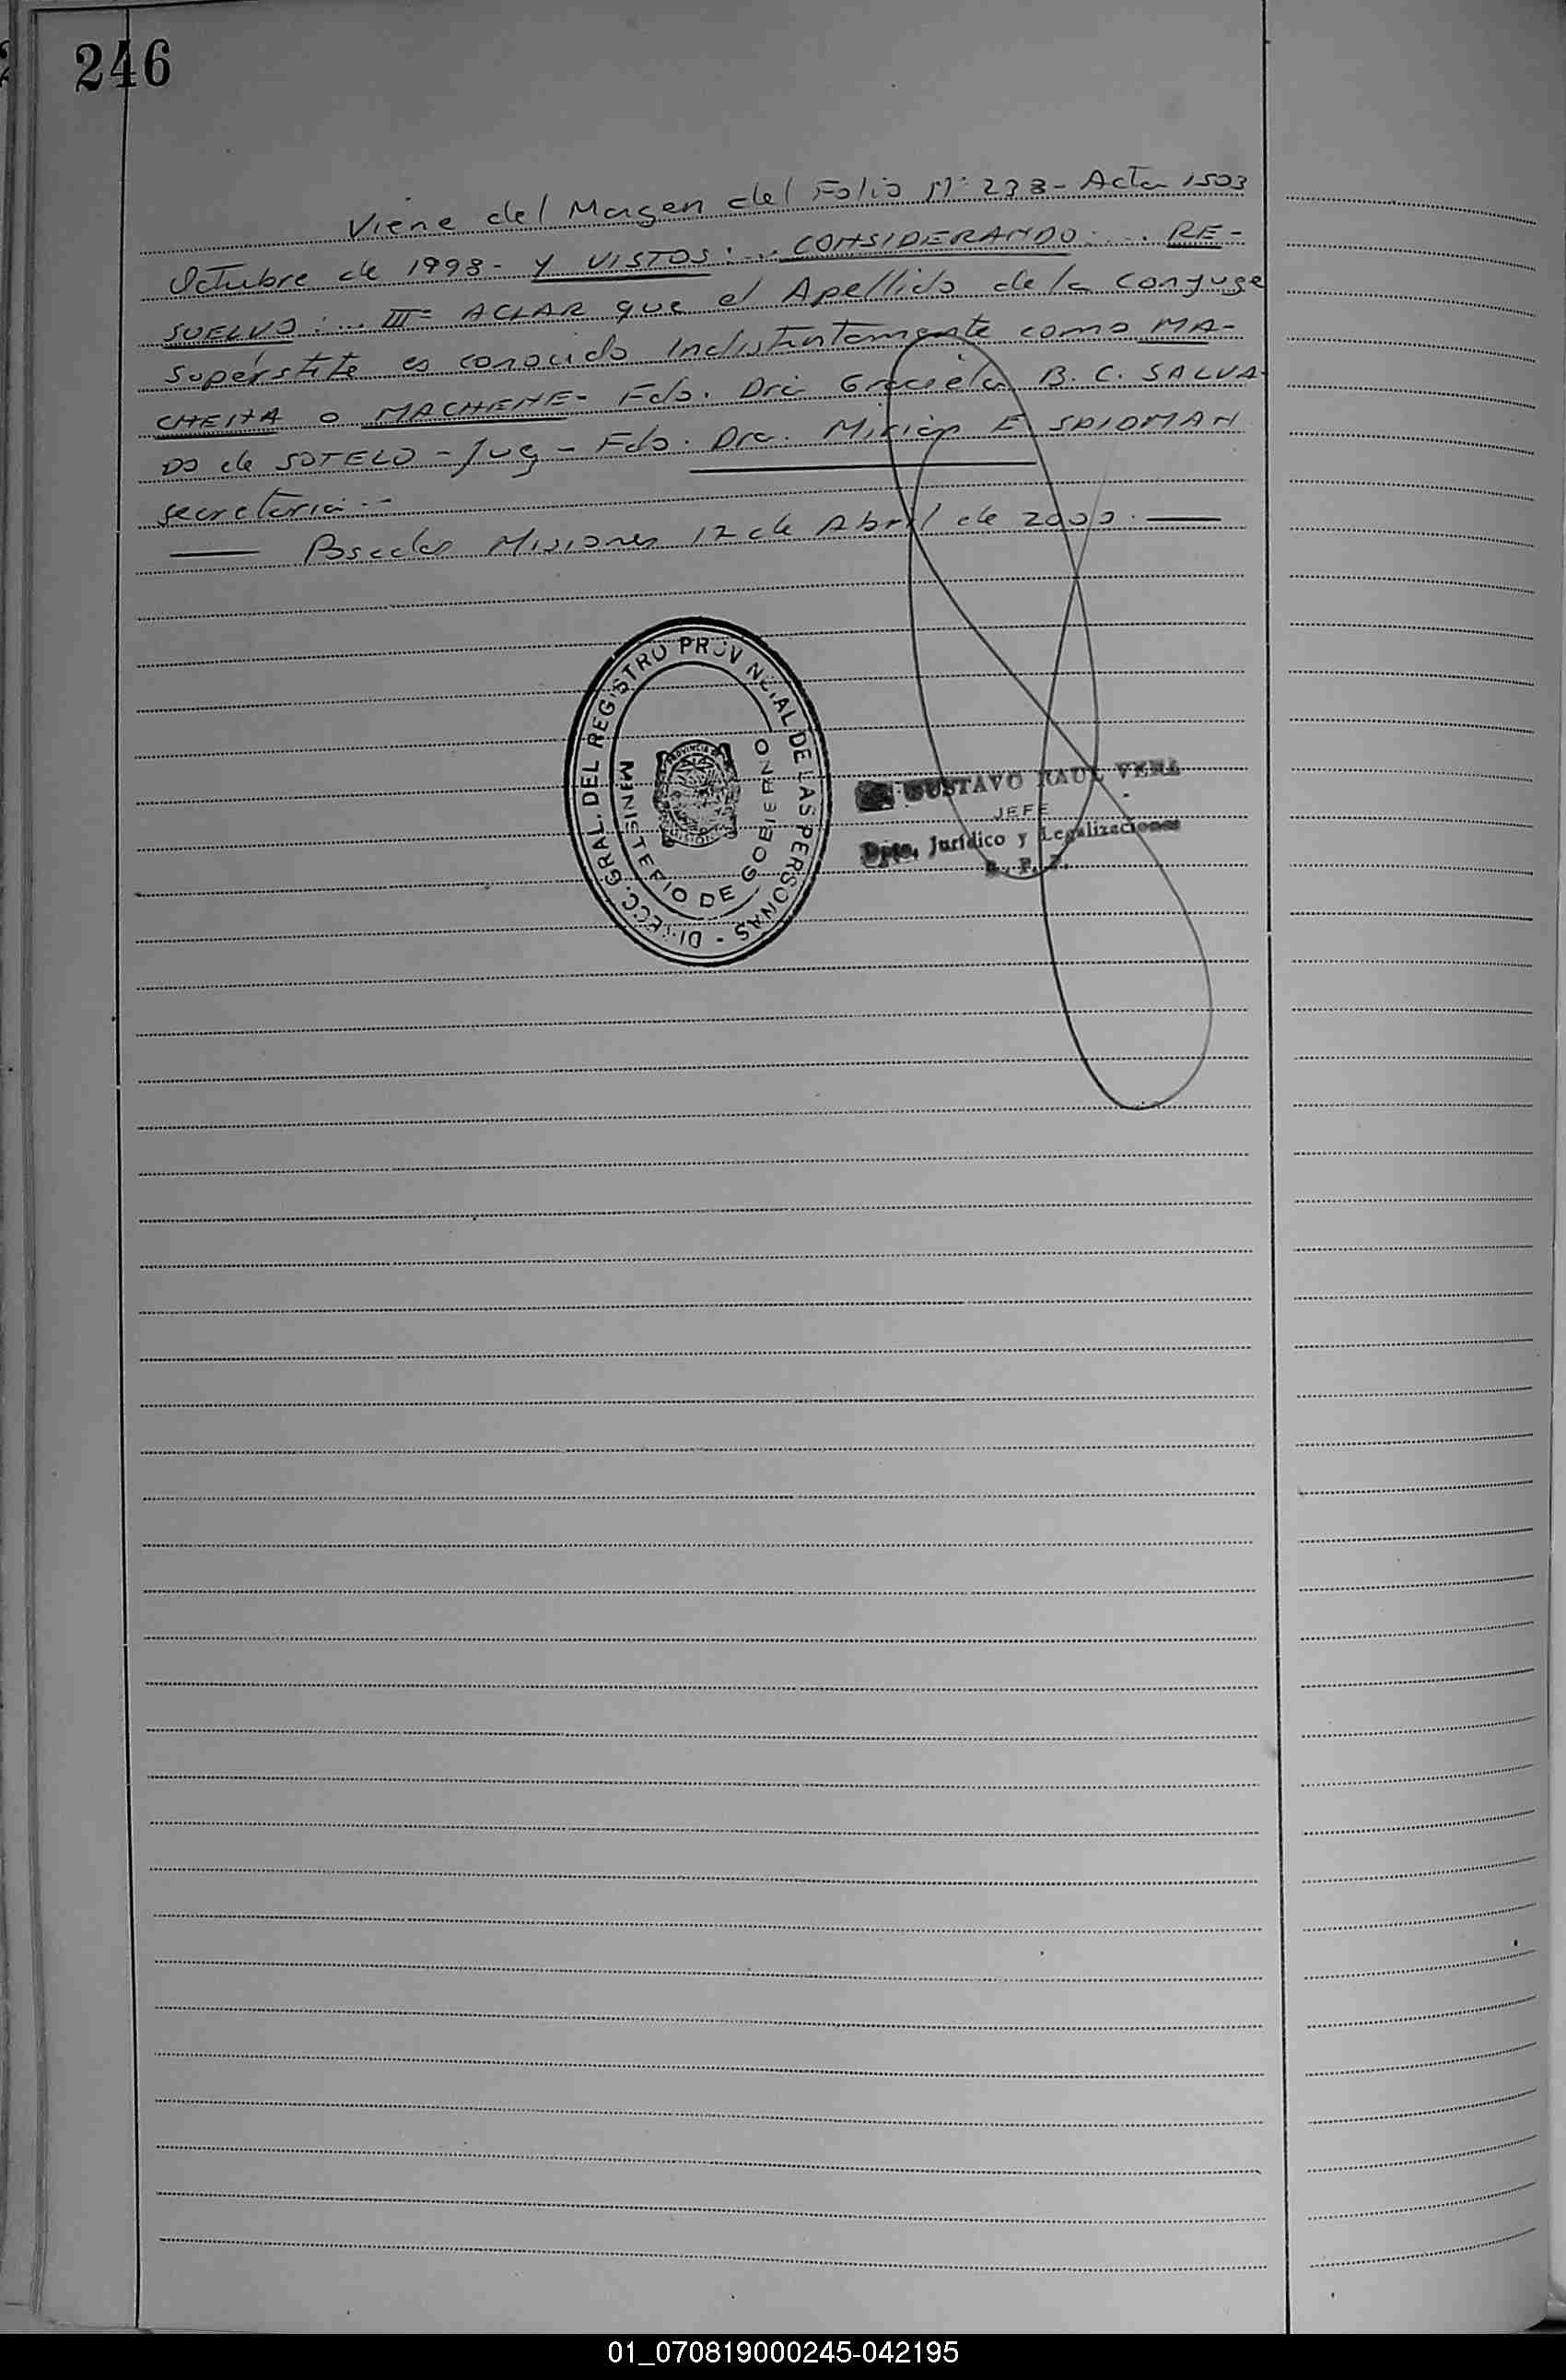 246
Viene del Margen del Folio Nº 238 - Acta 1503
Octubre de 1998 - Y VISTOS: ... CONSIDERANDO: ... RE-
SUELVO: ... IIIº ACLAR que el Apellido de la Conyuge
Supérstite es conocido Indistintamente como MA-
CHENA o MACHENE - Fdo. Dra Graciela B. C. SALVA-
DO de SOTELO - Jug - Fdo. Dra. Miriam E
secretaria -
Posadas Misiones 12 de Abril de 2000.
DIRECC. GRAL. DEL REGISTRO PROVINCIAL DE LAS PERSONAS -
MINISTERIO DE GOBIERNO
PROVINCIA DE
MISIONES
GUSTAVO RAUL VERA
JEFE
Dpto. Jurídico y Legalizaciones
R. P. P.
01_070819000245-042195